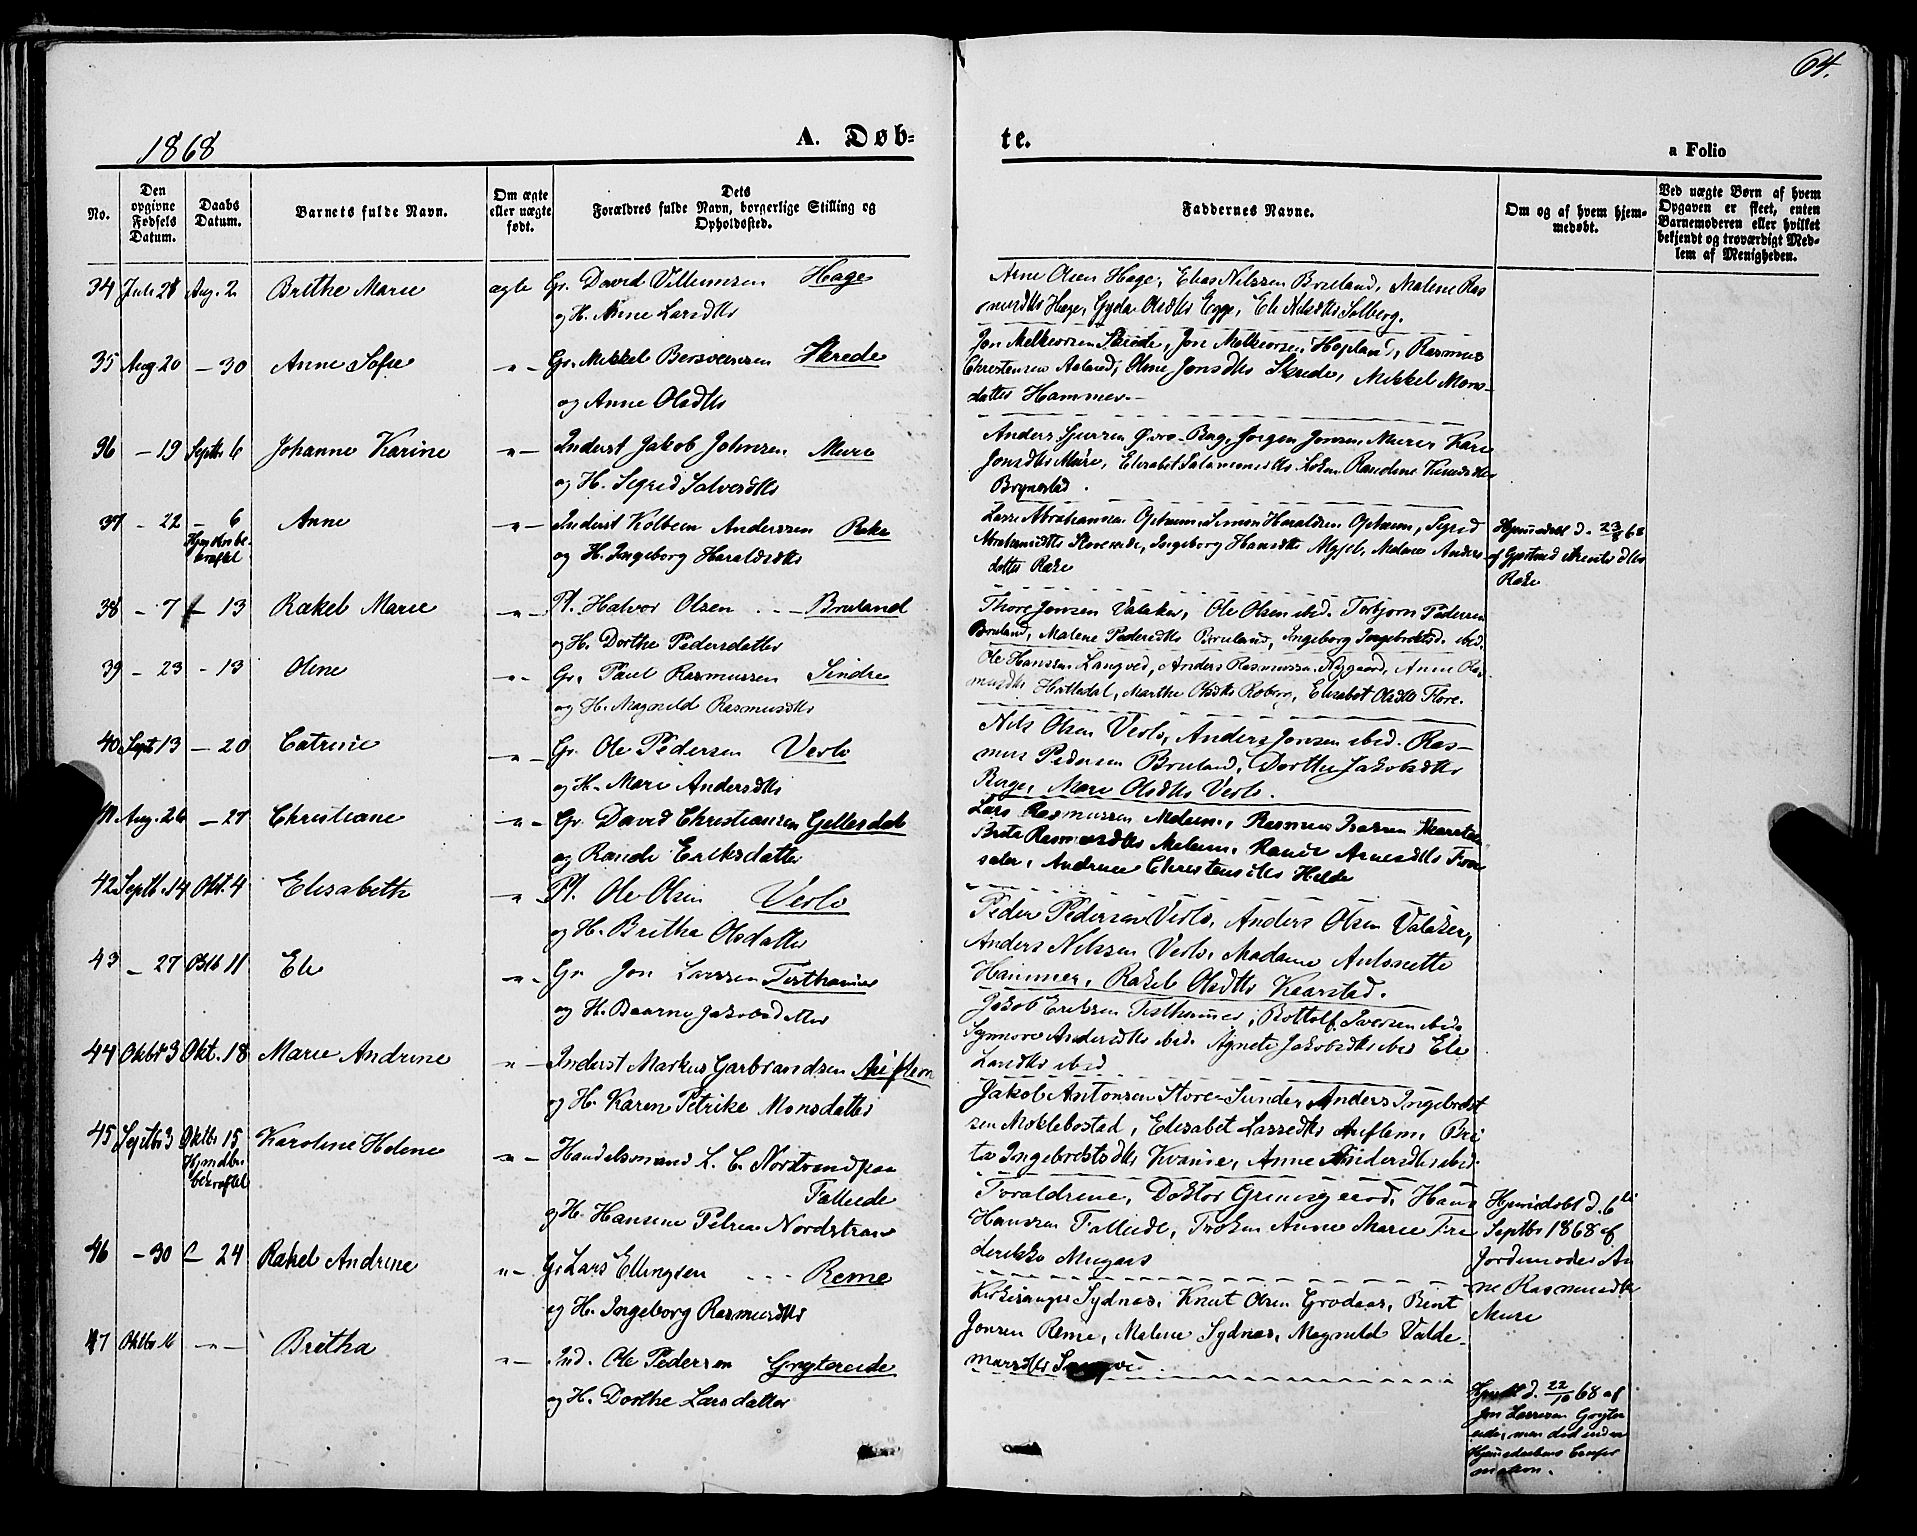 64.
1868
A. Døb-
te.
a Folio
No.
Den opgivne Fødsels Datum.
Daabs Datum.
Barnets fulde Navn.
Om ægte eller uægte født.
Dets Forældres fulde Navn, borgerlige Stilling og Opholdssted.
Faddernes Navne.
Om og af hvem hjemmedøbt.
Ved uægte Børn af hvem Opgaven er skeet, enten Barnemoderen eller hvilket bekjendt og troværdigt Medlem af Menigheden.
34 Juli 28 Aug. 2 Brithe Marie ægte Gr. David Villumsen Hage
og H. Anne Larsdtr
Arne Olsen Hage, Elias Nilssen Bruland, Malene Ras
musdtr Hage, Gyda Olsdtr Egge, Eli Nilsdtr Solberg.
35 Aug 20 — 30 Anne Sofie —"— Gr. Mikkel Bersveinsen Skrede
og Anne Olsdtr
Jon Melkiorsen Skrede, Jon Melkiorsen Hopland, Rasmus
Christensen Aaland, Oline Jonsdtr Skrede, Mikkel Mons-
datter Hammer.—
36 — 19 Septbr 6 Johanne Karine —"— Inderst Jakob Johnsen Mure
og H. Sigrid Salvesdtr
Anders Sjursen Øvre-Berg, Jørgen Jonsen Mure, Kari
Jonsdtr Mure, Elisabet Salamonsdtr Løken Randine Knudsdtr
Brynestad.
37 — 22 — 6 Anne —"— Inderst Kolbein Anderssen Rake
Hjemdbn be-
kræftet
og H. Ingeborg Haraldsdtr
Lasse Abrahamsen Opheim, Simon Haraldsen Opheim, Sigrid
Abrahamsdtr Storesæde, Ingeborg Hansdtr Myhl, Malene Anders
datter Rake
Hjemmedøbt d. 23/8 68
af Gjertrud
Rake
38 — 7 — 13 Rakel Marie —"— Pl. Halvor Olsen — Bruland
og H. Dorthe Pedersdatter
Thore Jonsen Valaker, Ole Olsen ibid. Torbjørn Pedersen
Bruland, Malene Pedersdtr Bruland, Ingeborg Ingebretsd. ibid.
39 — 23 — 13 Oline —"— Gr. Paul Rasmussen Sindre
og H. Magnild Rasmusdtr
Ole Hanssen Langved, Anders Rasmussen Nygaard, Anne Ras
musdtr Holledal, Marthe Olsdtr Roberg, Elisabet Olsdtr Flore.
40 Septr 13 — 20 Catrine —"— Gr. Ole Pedersen Verlo
og H. Mari Andersdtr
Nils Olsen Verlo, Anders Jonsen ibid. Ras-
mus Pedersen Bruland, Dorthe Jakobsdtr
Berge, Mari Olsdtr Verlo.
41 Aug. 26 — 27 Christiane —"— Gr. David Christiansen Gellesdal
og Rande Eriksdatter
Lars Rasmussen Melem, Rasmus Iversen Kaarstad
Brite Rasmusdtr Melem, Rande Arnesdtr
Andrine Christensdtr Helde
42 Septbr 14 Okt. 4 Elisabeth —"— Pl. Ole Olsen Verlo
og H. Britha Olsdatter
Peder Pedersen Verlo, Anders Olsen Valaker,
Anders Nilssen Verlo, Madame Antonette
Hammer, Rakel Olsdtr Kaarstad.
43 — 27 Oktb 11 Eli —"— Gr Jon Larssen Tisthamer
og H. Baarne Jakobsdatter
Jakob Erikssen Tisthamer, Bottolf Iversen ibid.
Synnøve Andersdtr ibid. Agnete Jakobsdtr ibid Eli
Larsdtr ibid
44 Oktbr 3 Okt. 18 Marie Andrine —"— Inderst Markus Garbrandsen Auflem
og H. Karen Petrike Monsdatter
Jakob Antonsen Store-Sunde, Anders Ingebrekt
sen Moklebostad, Elisabet Lassedtr Auflem, Bri
ta Ingebretsdtr Kvame, Anne Andersdtr ibid.
45 Septbr 3 Oktbr 15 Karoline Helene —"— Handelsmand L. C. Nordstrand paa
Hjemdbn
bekræftet
Falleide
og H. Hansine Petrea Nordstrand
Foraldrene, Doktor Grimsgaard, Hans
Hanssen Falleide, Frøken Anne Marie Fre
derikke Mugaas
Hjemdøbt d. 6te
Septbr 1868 af
Jordemoder An
ne Rasmusdtr
Mure
46 — 30 — 24 Rakel Andrine —"— Gr Lars Ellingsen — Reme
og H. Ingeborg Rasmusdtr
Kirkesanger Sydnæs, Knut Olsen Grodaas, Bent
Jonsen Reme, Malene Sydnæs, Magnild Valde-
marsdtr
47 Oktbr 16 —"— Britha —"— Ind. Ole Pedersen Grytereide
og H. Dorthe Larsdatter
Hjmdbt d. 22/10 68 af
Jon Larssen Gryte
reide, men død inden
Hjemmedaabens Confir
mation.